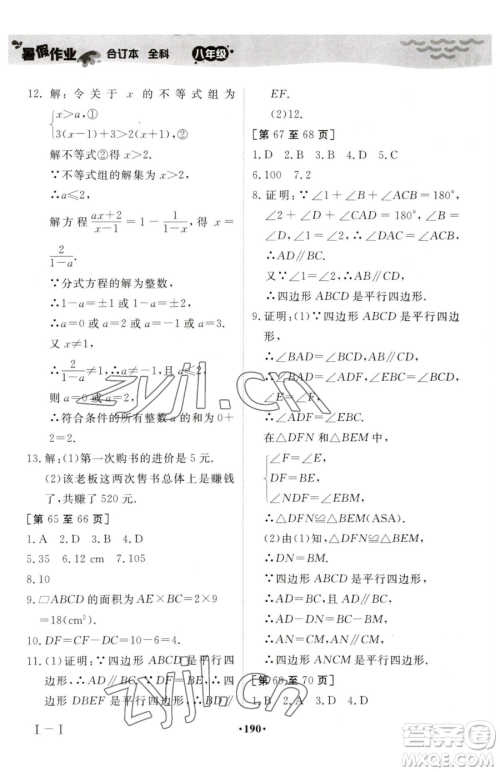 暑假作业 合订本 全科 八年级
12. 解：令关于 x 的不等式组为
{x>a,①
3(x-1)+3≥4x②
解不等式②得 x≤2.
∵不等式组的解集为 x>a,
∴a≤2.
解方程 (ax+2)/(x-1)=1-1/(1-x), x=
2/(1-a).
∵分式方程的解为整数,
∴1-a=±1 或 1-a=±2.
∴a=0 或 2 或-1 或 3.
又∵x≠1,
∴2/(1-a)≠1. ∴a≠-1. 且∵a≤2,
则 a=0 或 a=2.
∴符合条件的所有 a 的和为 0+
2=2.
13. 解：(1)第一次购书的进价是 5 元.
(2)该老板这两次售书总体上是赚钱
了,共赚了 520 元.
[第 65 至 66 页]
1. A 2. D 3. B 4. D
5. 35 6. 12 cm 7. 105
8. 10
9. □ABCD 的面积为 AC×BE=2×9
=18(cm²).
10. DF=CF-DC=10-6=4.
11. (1)证明：∵四边形 ABCD 是平行四
边形,四边形 DBEF 是平行四边形,
EF.
(2)12.
[第 67 至 68 页]
1. D 2. B 3. B 4. D 5. C
6. 100 7. 2
8. 证明：∵∠1+∠B+∠ACB=180°,
∠2+∠D+∠CAD=180°, ∠B=
∠D,∠1=∠2,∴∠DAC=∠ACB.
∴AD∥BC.
又∵∠1=∠2,∴AB∥CD.
∴四边形 ABCD 是平行四边形.
9. 证明：(1)∵四边形 ABCD 是平行四边
形,
∴∠BAD=∠BCD,AB∥CD.
∴∠BAD=∠ADF,∠EBC=∠BCD.
∴∠ADF=∠EBC.
在△DFN 和△BEM 中,
{∠F=∠E,
DF=BE,
∠ADF=∠EBC,
∴△DFN≌△BEM(ASA).
(2)由(1)知,△DFN≌△BEM,
∴DN=BM.
∵四边形 ABCD 是平行四边形,
∴AD=BC,且 AD∥BC.
∴AN=CM.
∴四边形 ANCM 是平行四边形.
[第 69 至 70 页]
1. B 2. A 3. D 4. D
Ⅰ－Ⅰ
·190·
zyjl.cn
zyjl.cn